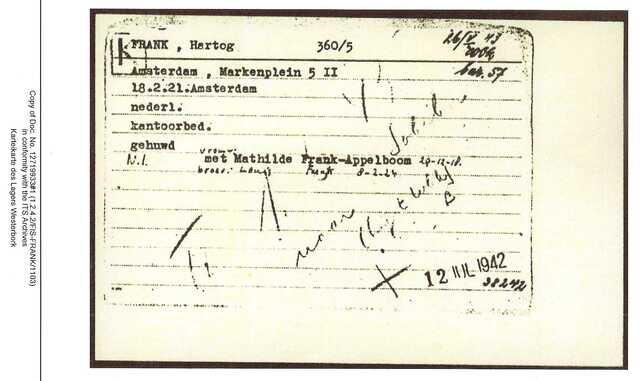 K
FRANK , Hartog 360/5 26/V 43
bar. 57
Amsterdam , Markenplein 5 II
18.2.21.Amsterdam
nederl.
kantoorbed.
gehuwd
N.I. vrouw:
met Mathilde Frank-Appelboom 29-12-18.
broer: Louis Frank 8-2-24
naar
12 JUL 1942
38242
Copy of Doc. No. 12719933#1 (1.2.4.2/FIS-FRANK/1103)
in conformity with the ITS Archives
Karteikarte des Lagers Westerbork